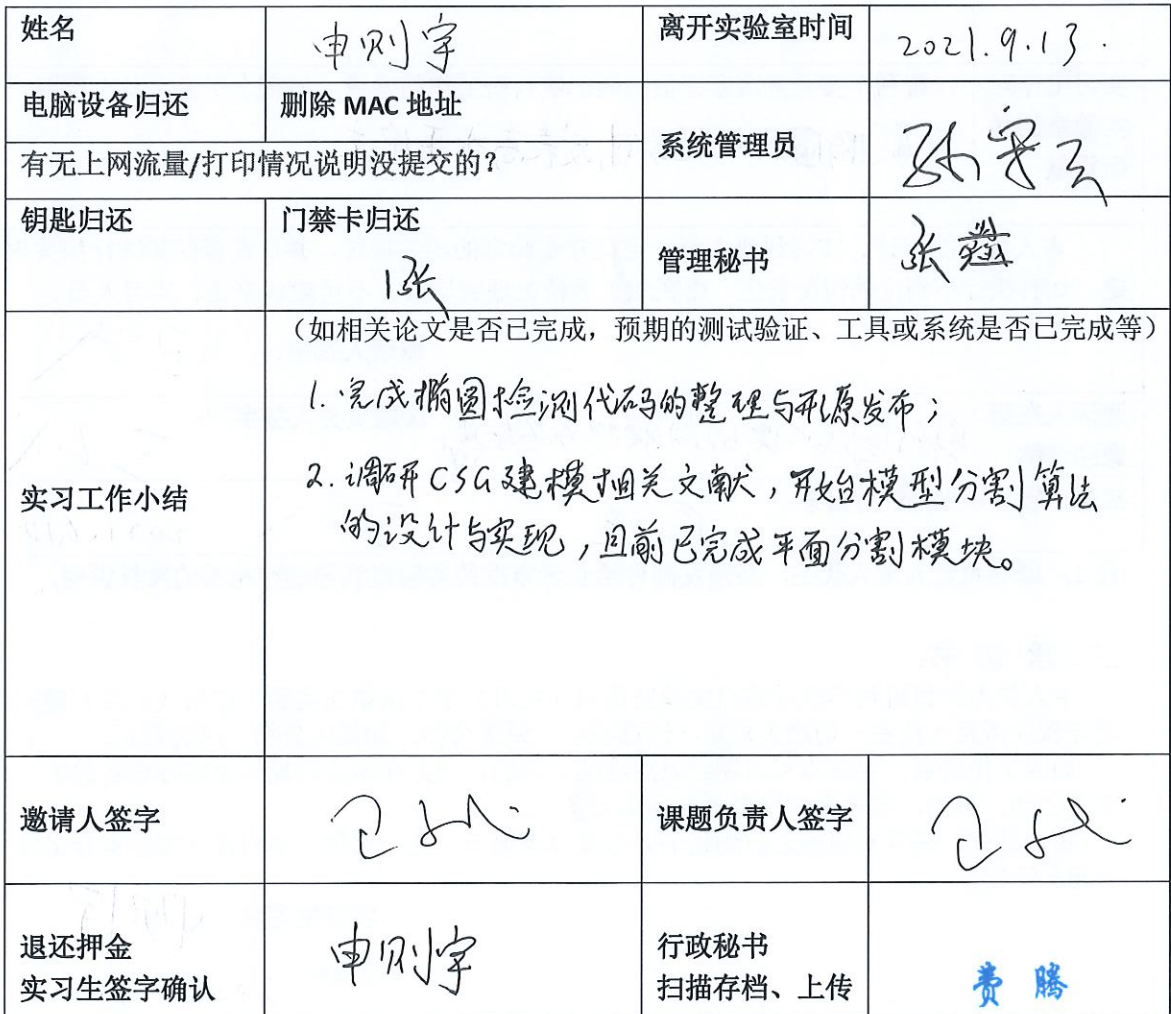 姓名 申则宇 离开实验室时间 2021.9.13.
电脑设备归还 删除 MAC 地址
有无上网流量/打印情况说明没提交的?
系统管理员
钥匙归还 门禁卡归还
1张
管理秘书 张
(如相关论文是否已完成,预期的测试验证、工具或系统是否已完成等)
1. 完成椭圆检测代码的整理与开源发布;
实习工作小结
2. 调研CSG建模相关文献,开始模型分割算法
的设计与实现,目前已完成平面分割模块。
邀请人签字 课题负责人签字
退还押金
实习生签字确认
申则宇
行政秘书
扫描存档、上传
费腾